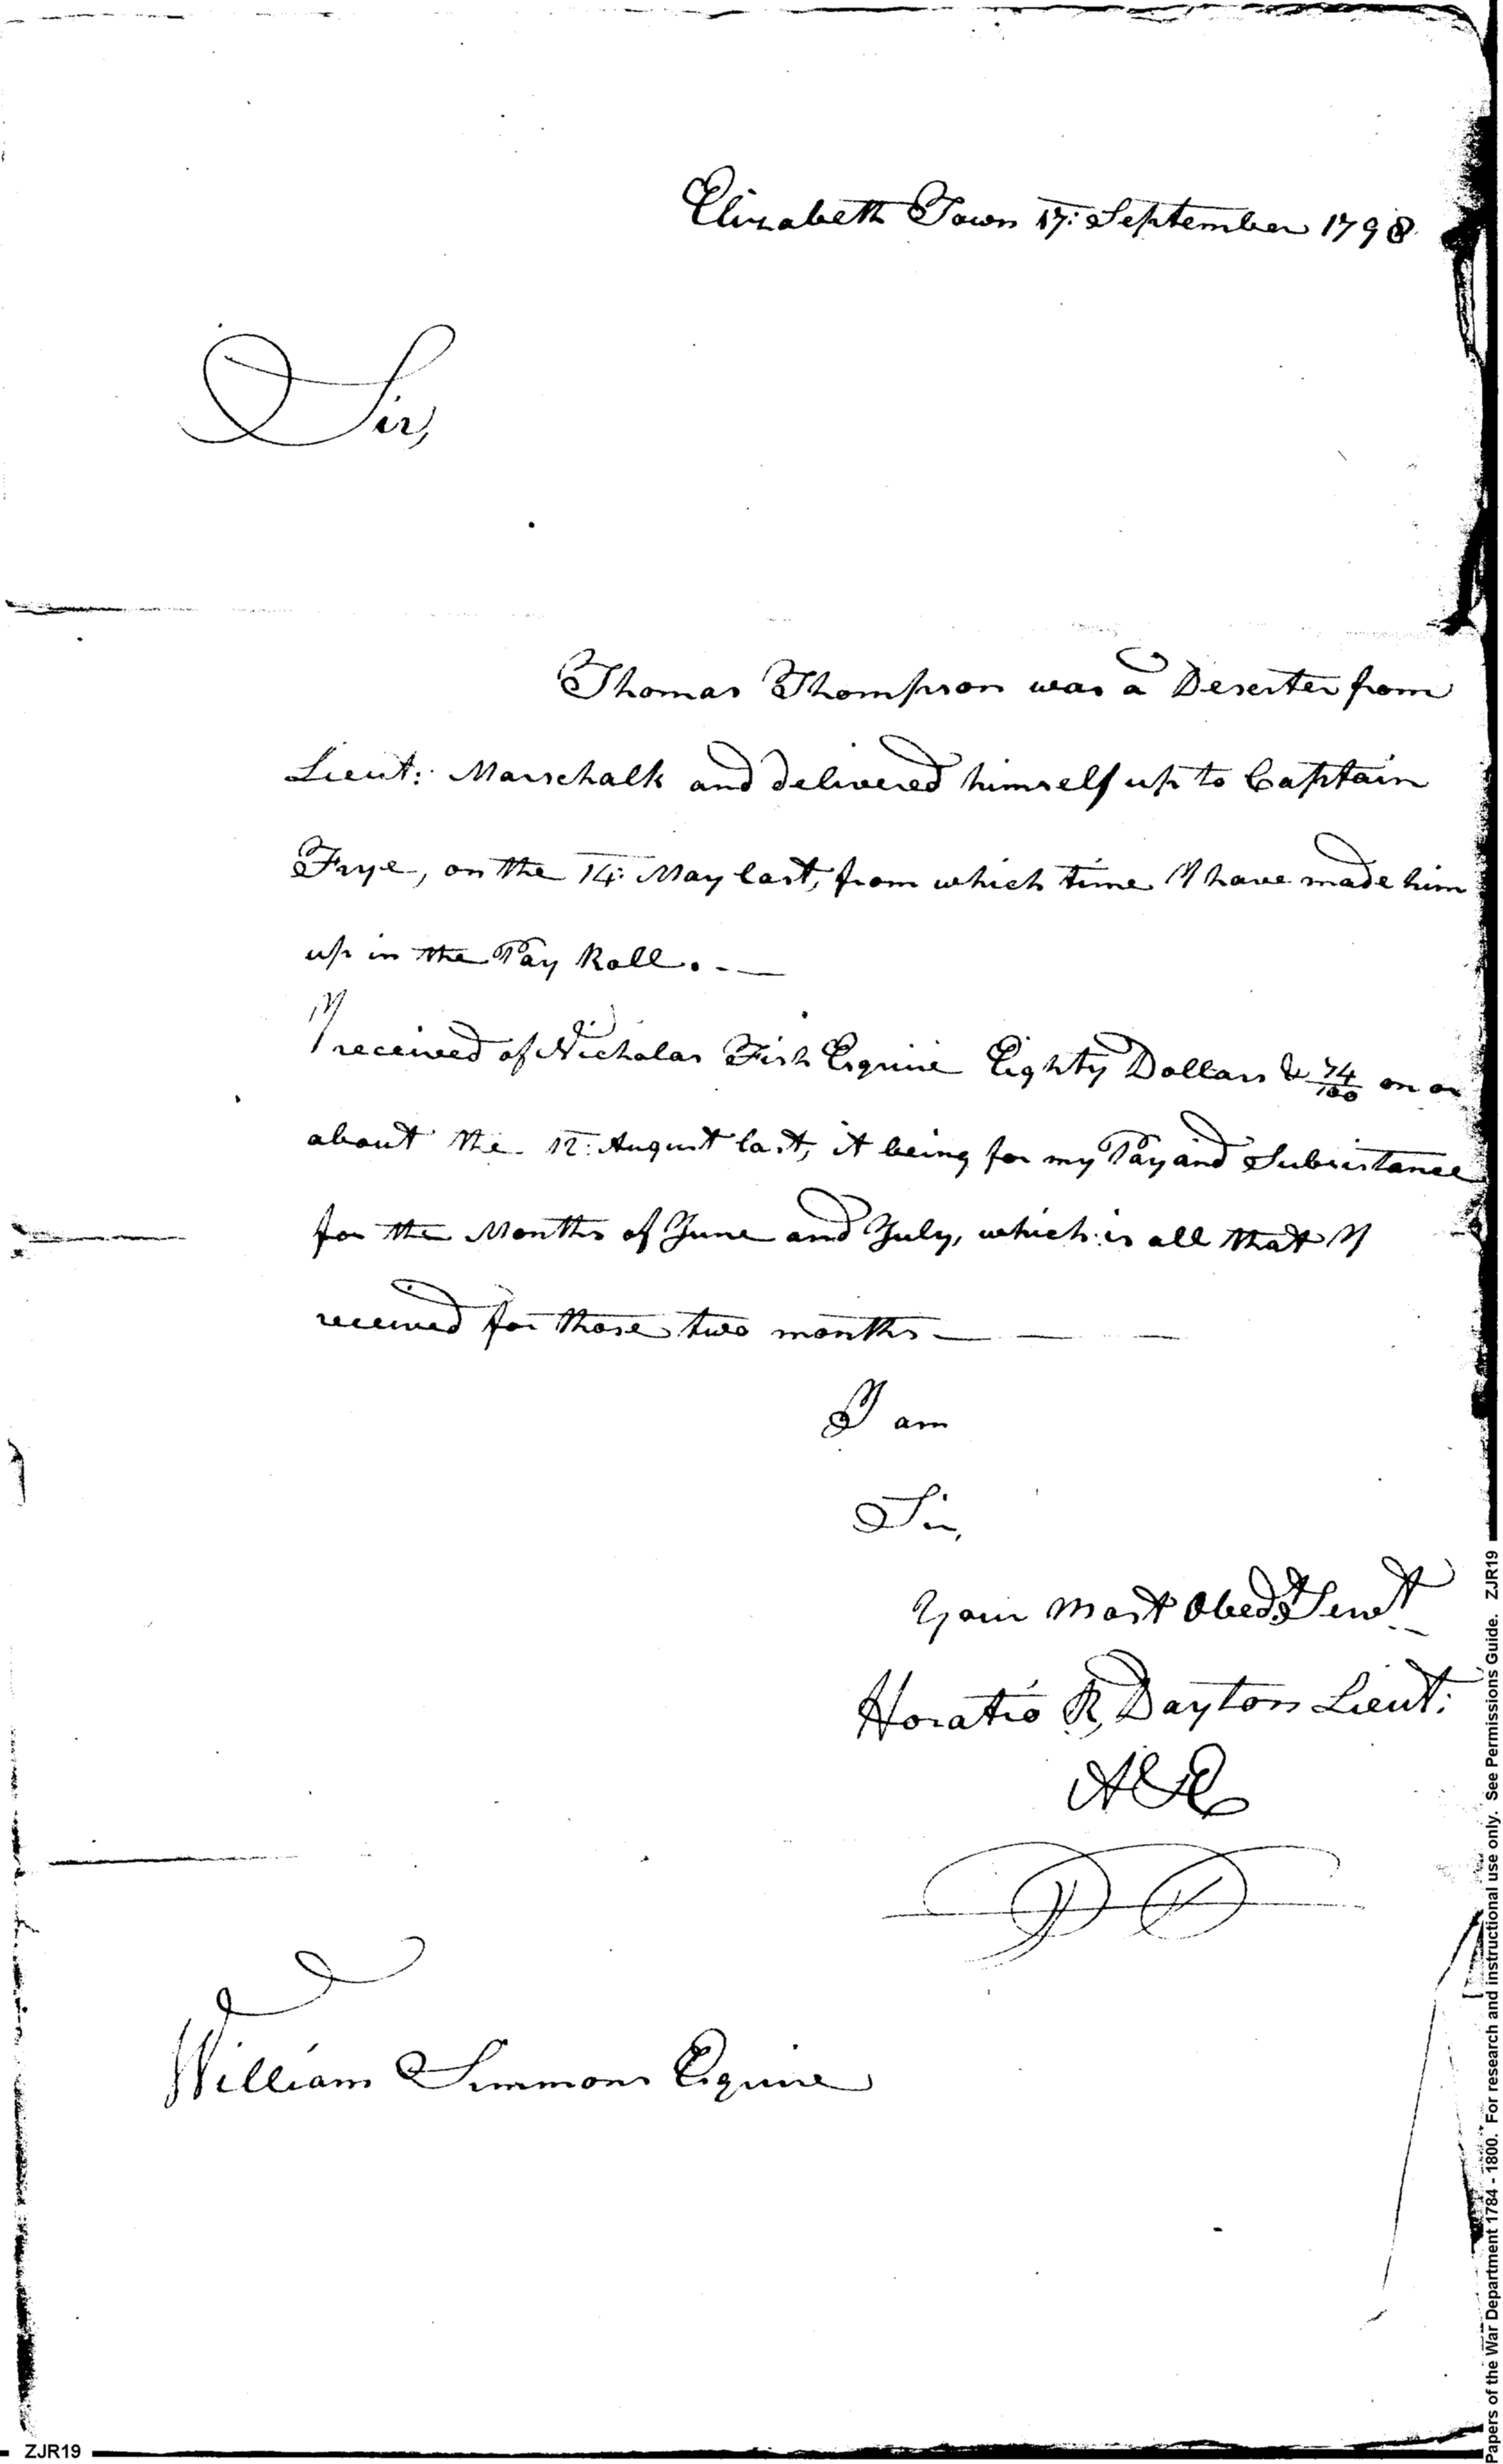 Elizabeth Town 17: September 1798
Sir,
Thomas Thompson was a Deserter from
Lieut: Marschalk and delivered himself up to Captain
Frye, on the 14: May last, from which time I have made him
up in the Pay Roll. - —
I received of Nicholas Fish Esquire Eighty Dollars & 74/100 on or
about the 12: August last, it being for my Pay and Subsistance
for the Months of June and July, which is all that I
received for those two months — — —
I am
Sir,
Your Most Obedt Servt
Horatio R, Dayton Lieut:
A&E
William Simmons Esquire
ZJR19
Papers of the War Department 1784 - 1800. For research and instructional use only. See Permissions Guide. ZJR19